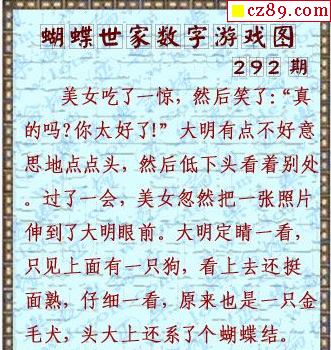 cz89.com
蝴蝶世家数字游戏图
292期
美女吃了一惊，然后笑了：“真
的吗？你太好了！”大明有点不好意
思地点点头，然后低下头看着别处
。过了一会，美女忽然把一张照片
伸到了大明眼前。大明定睛一看，
只见上面有一只狗，看上去还挺
面熟，仔细一看，原来也是一只金
毛犬，头大上还系了个蝴蝶结。